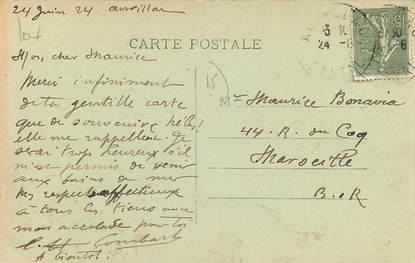 24 Juin 24 aurillac
CARTE POSTALE
Mon cher Maurice
Merci infiniment
de ta gentille carte
que de souvenirs hélas!
elle me rappellent. Je
serai trop heureux s'il
m'est permis de venir
aux bains de mer
Mes respects affectueux
à tous les tiens avec
mon accolade pour toi
Combart
A bientôt!
15
Mr Maurice Bonavia
44. R. du Coq
Marseille
B. d R